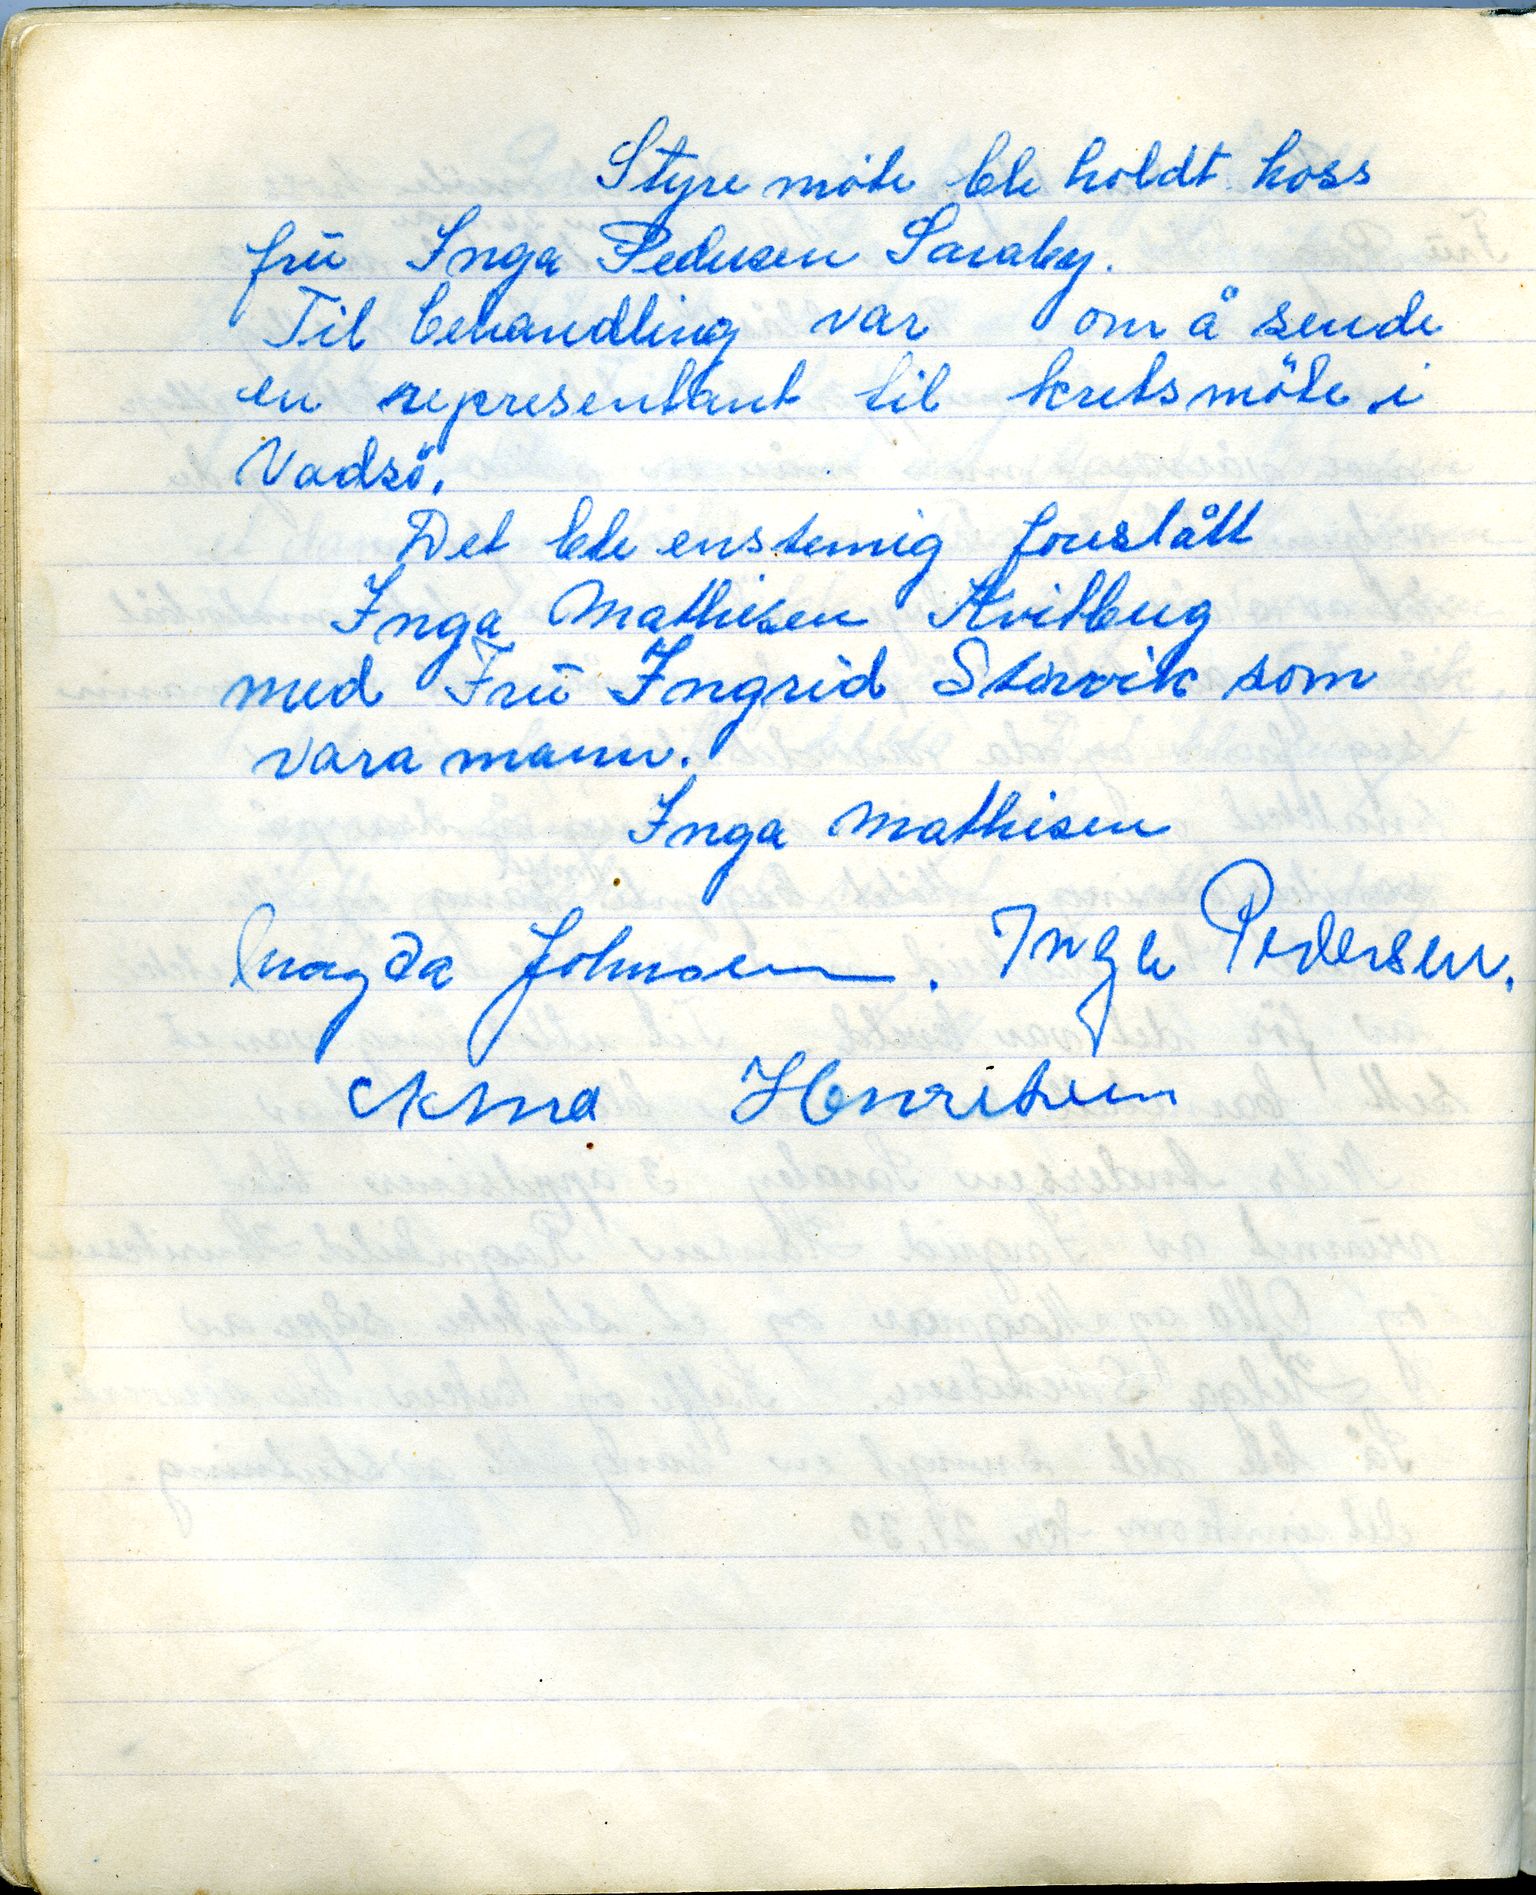 Styre möte ble holdt hoss
frū Inga Pedersen Saraby.
Til behandling var om å sende
en representant til kretsmöte i
Vadsö.
Det ble enstemig foreslått
Inga Mathisen Kvitberg
med Frū Ingrid Storvik som
vara mann.
Inga Mathisen
Magda Johnsen. Inga Pedersen.
Alma Henriksen